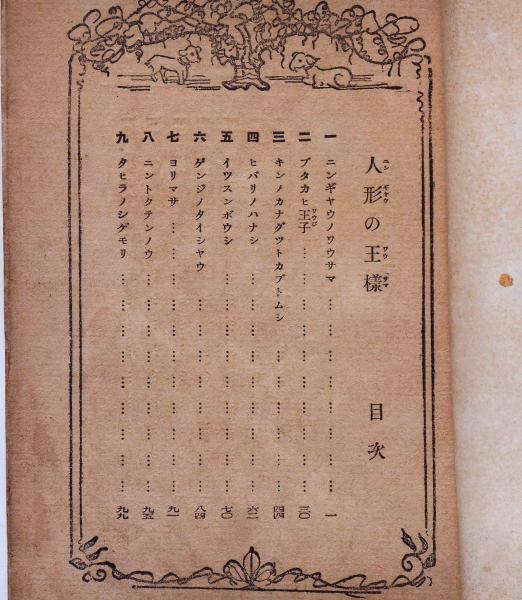 人形の王様 目次
一 ニンギヤウノワウサマ … … … … … … … 一
二 ブタカヒ王子 … … … … … … … … … 三〇
三 キンノカナグツトカブトムシ … … … … … … 四四
四 ヒバリノハナシ … … … … … … … … 六二
五 イツスンボウシ … … … … … … … … 七〇
六 ゲンジノタイシヤウ … … … … … … … 八四
七 ヨリマサ … … … … … … … … … … 九一
八 ニントクテンノウ … … … … … … … … 九五
九 タヒラノシゲモリ … … … … … … … … 九九